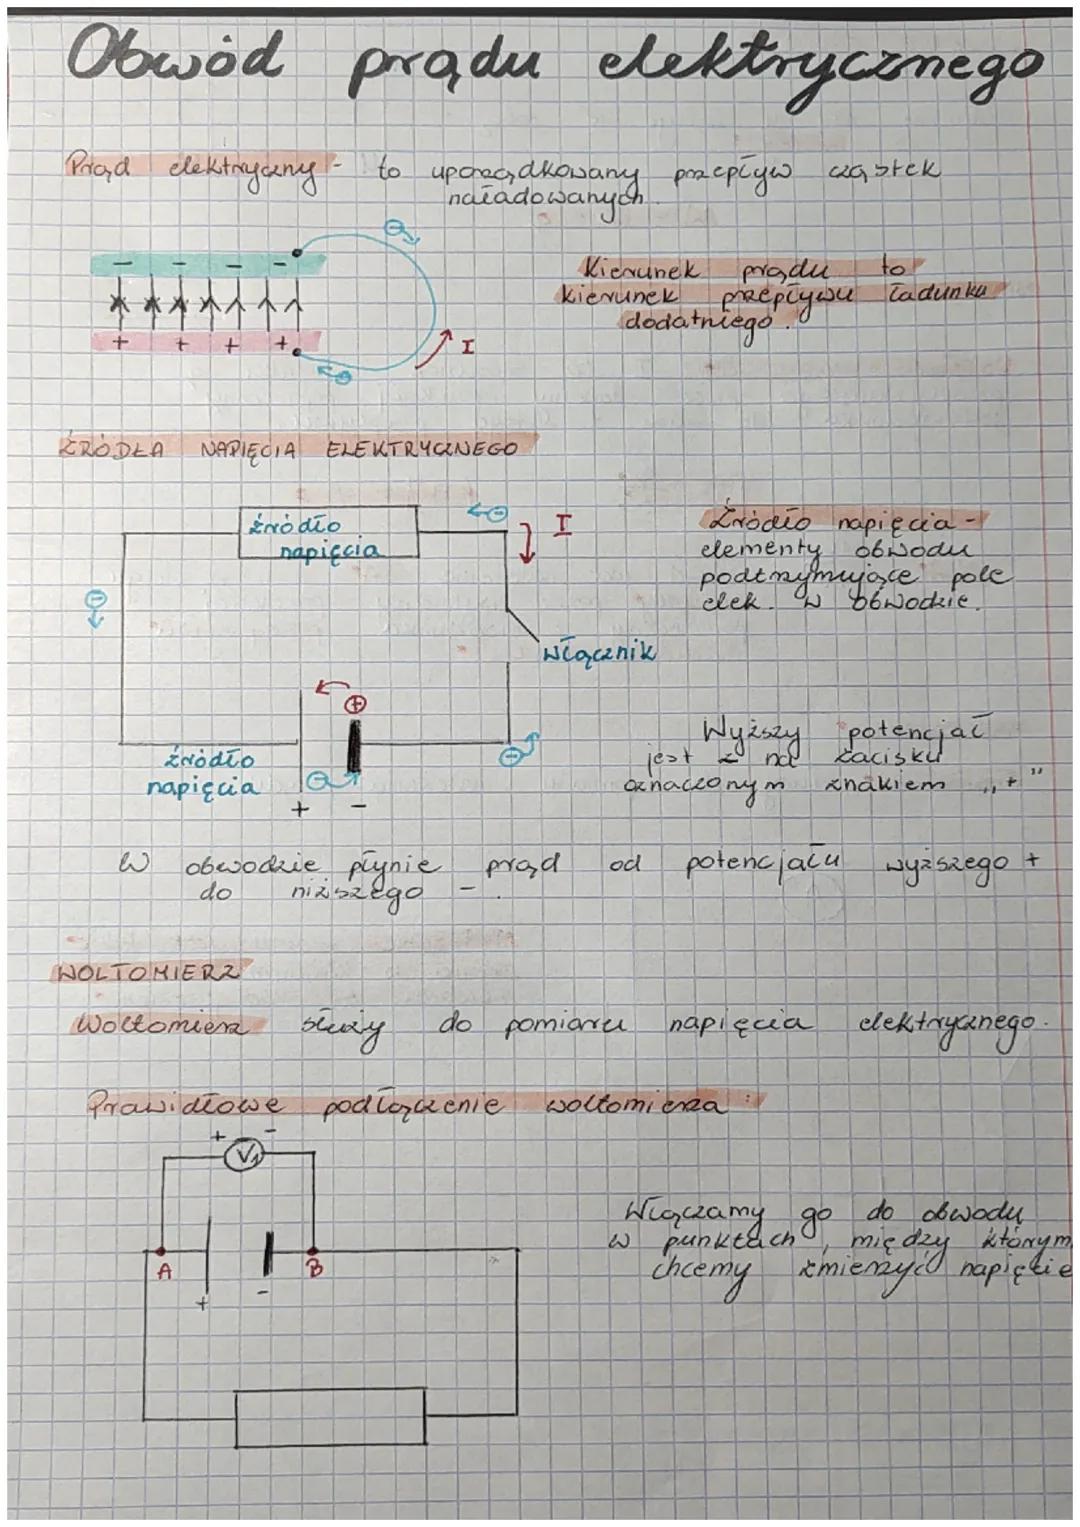 Obwód prądu elektrycznego
Prąd elektryczny - to uporządkowany przepływ cząstek
naładowanych.
- - - -
+ + + +
I
Kierunek prądu to
kierunek przepływu ładunku
dodatniego.
ŹRÓDŁA NAPIĘCIA ELEKTRYCZNEGO
źródło
napięcia
I
Źródło napięcia -
elementy obwodu
podtrzymujące pole
elek. w obwodzie.
włącznik
źródło
napięcia
+ -
Wyższy potencjał
jest na zacisku
oznaczonym znakiem „+”
W obwodzie płynie prąd od potencjału wyższego +
do niższego -.
WOLTOMIERZ
Woltomierz służy do pomiaru napięcia elektrycznego.
Prawidłowe podłączenie woltomierza:
+ V₁ -
A B
+ -
Włączamy go do obwodu
w punktach, między którym
chcemy zmierzyć napięcie